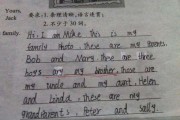 Yours,
Jack
要求: 1. 条理清晰, 语言通顺;
2. 不少于30词。
family.
Hi I am Mike This is my
family photo these are my parents
Bob and Mary three are three
boys are my brother, these are
my uncle and my aunt. Helen
and Linda, these are my
grandparents, Peter and Sally.